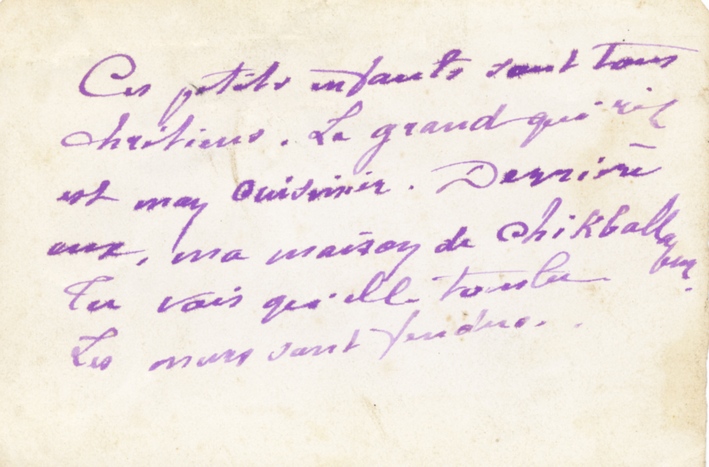 Ces petits enfants sont tous
chrétiens. Le grand qui rit
est mon cuisinier. Derrière
eux, ma maison de Chikballa
pur.
Tu vois qu'elle tombe
Les murs sont fendus..